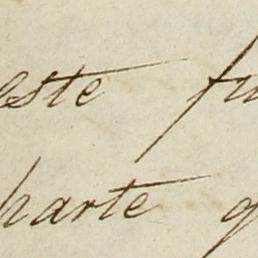 este fu
parte q